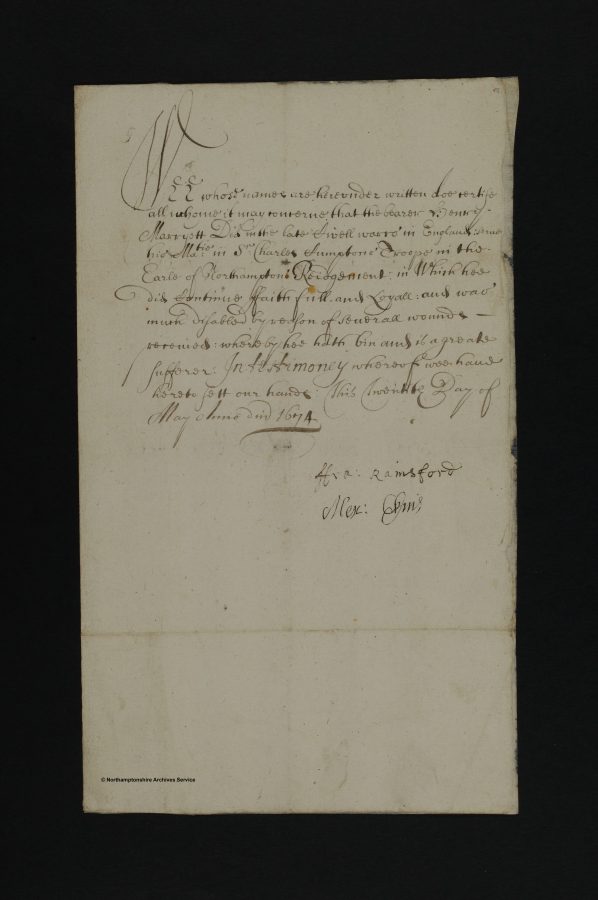 WEE whose names are hereunder written doe certifie
all whome it may concerne that the bearer Henry
Marryett Did in the late Civell warrs in England serve
his Ma:tie in Sr Charles Cumptons Troope in the
Earle of Northamptons Reidgement: in Which hee
did Continue ffaithfull and Loyall: and was
much disabled by reason of severall wounds
received: whereby hee hath bin and is a greate
sufferer: In testimoney whereof wee have
hereto sett our hands: This Twentith Day of
May Anno dni 1674
ffra: Rainsford
Alex:
© Northamptonshire Archives Service